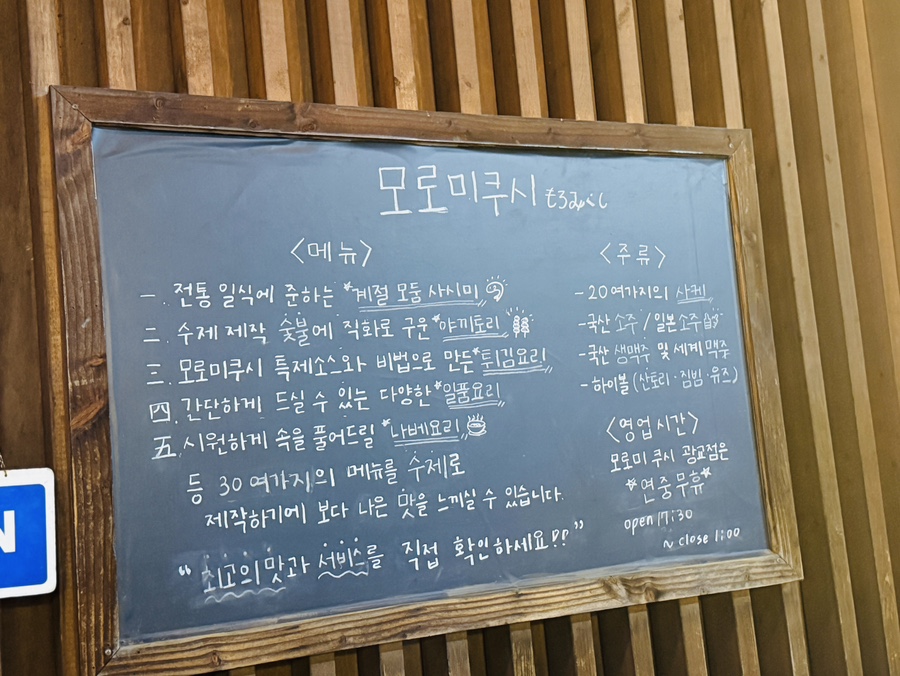 모로미쿠시 もろみくし
<메뉴>
一. 전통 일식에 준하는 *계절 모둠 사시미
二. 수제 제작 숯불에 직화로 구운 *야끼토리
三. 모로미쿠시 특제소스와 비법으로 만든 *튀김요리
四. 간단하게 드실 수 있는 다양한 *일품요리
五. 시원하게 속을 풀어드릴 *나베요리
등 30여가지의 메뉴를 수제로
제작하기에 보다 나은 맛을 느끼실 수 있습니다.
"최고의 맛과 서비스를 직접 확인하세요!?"
<주류>
- 20여가지의 사케
- 국산 소주 / 일본 소주
- 국산 생맥주 및 세계 맥주
- 하이볼 (산토리·짐빔·유즈)
<영업시간>
모로미 쿠시 광교점은
*연중무휴*
open 17:30
~ close 1:00
N